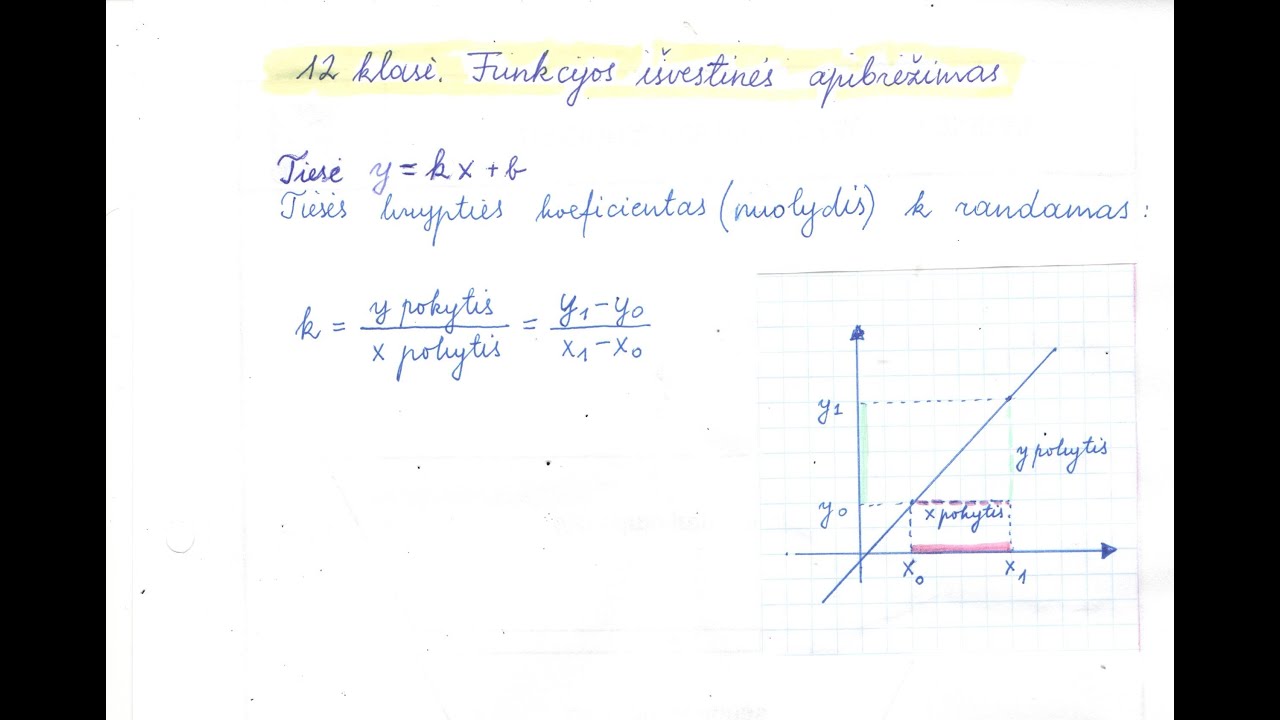 12 klasė. Funkcijos išvestinės apibrėžimas
Tiesė y = kx + b
Tiesės krypties koeficientas (nuolydis) k randamas:
k = y pokytis / x pokytis = y₁ − y₀ / x₁ − x₀
y₁
y pokytis
y₀
x pokytis
x₀ x₁